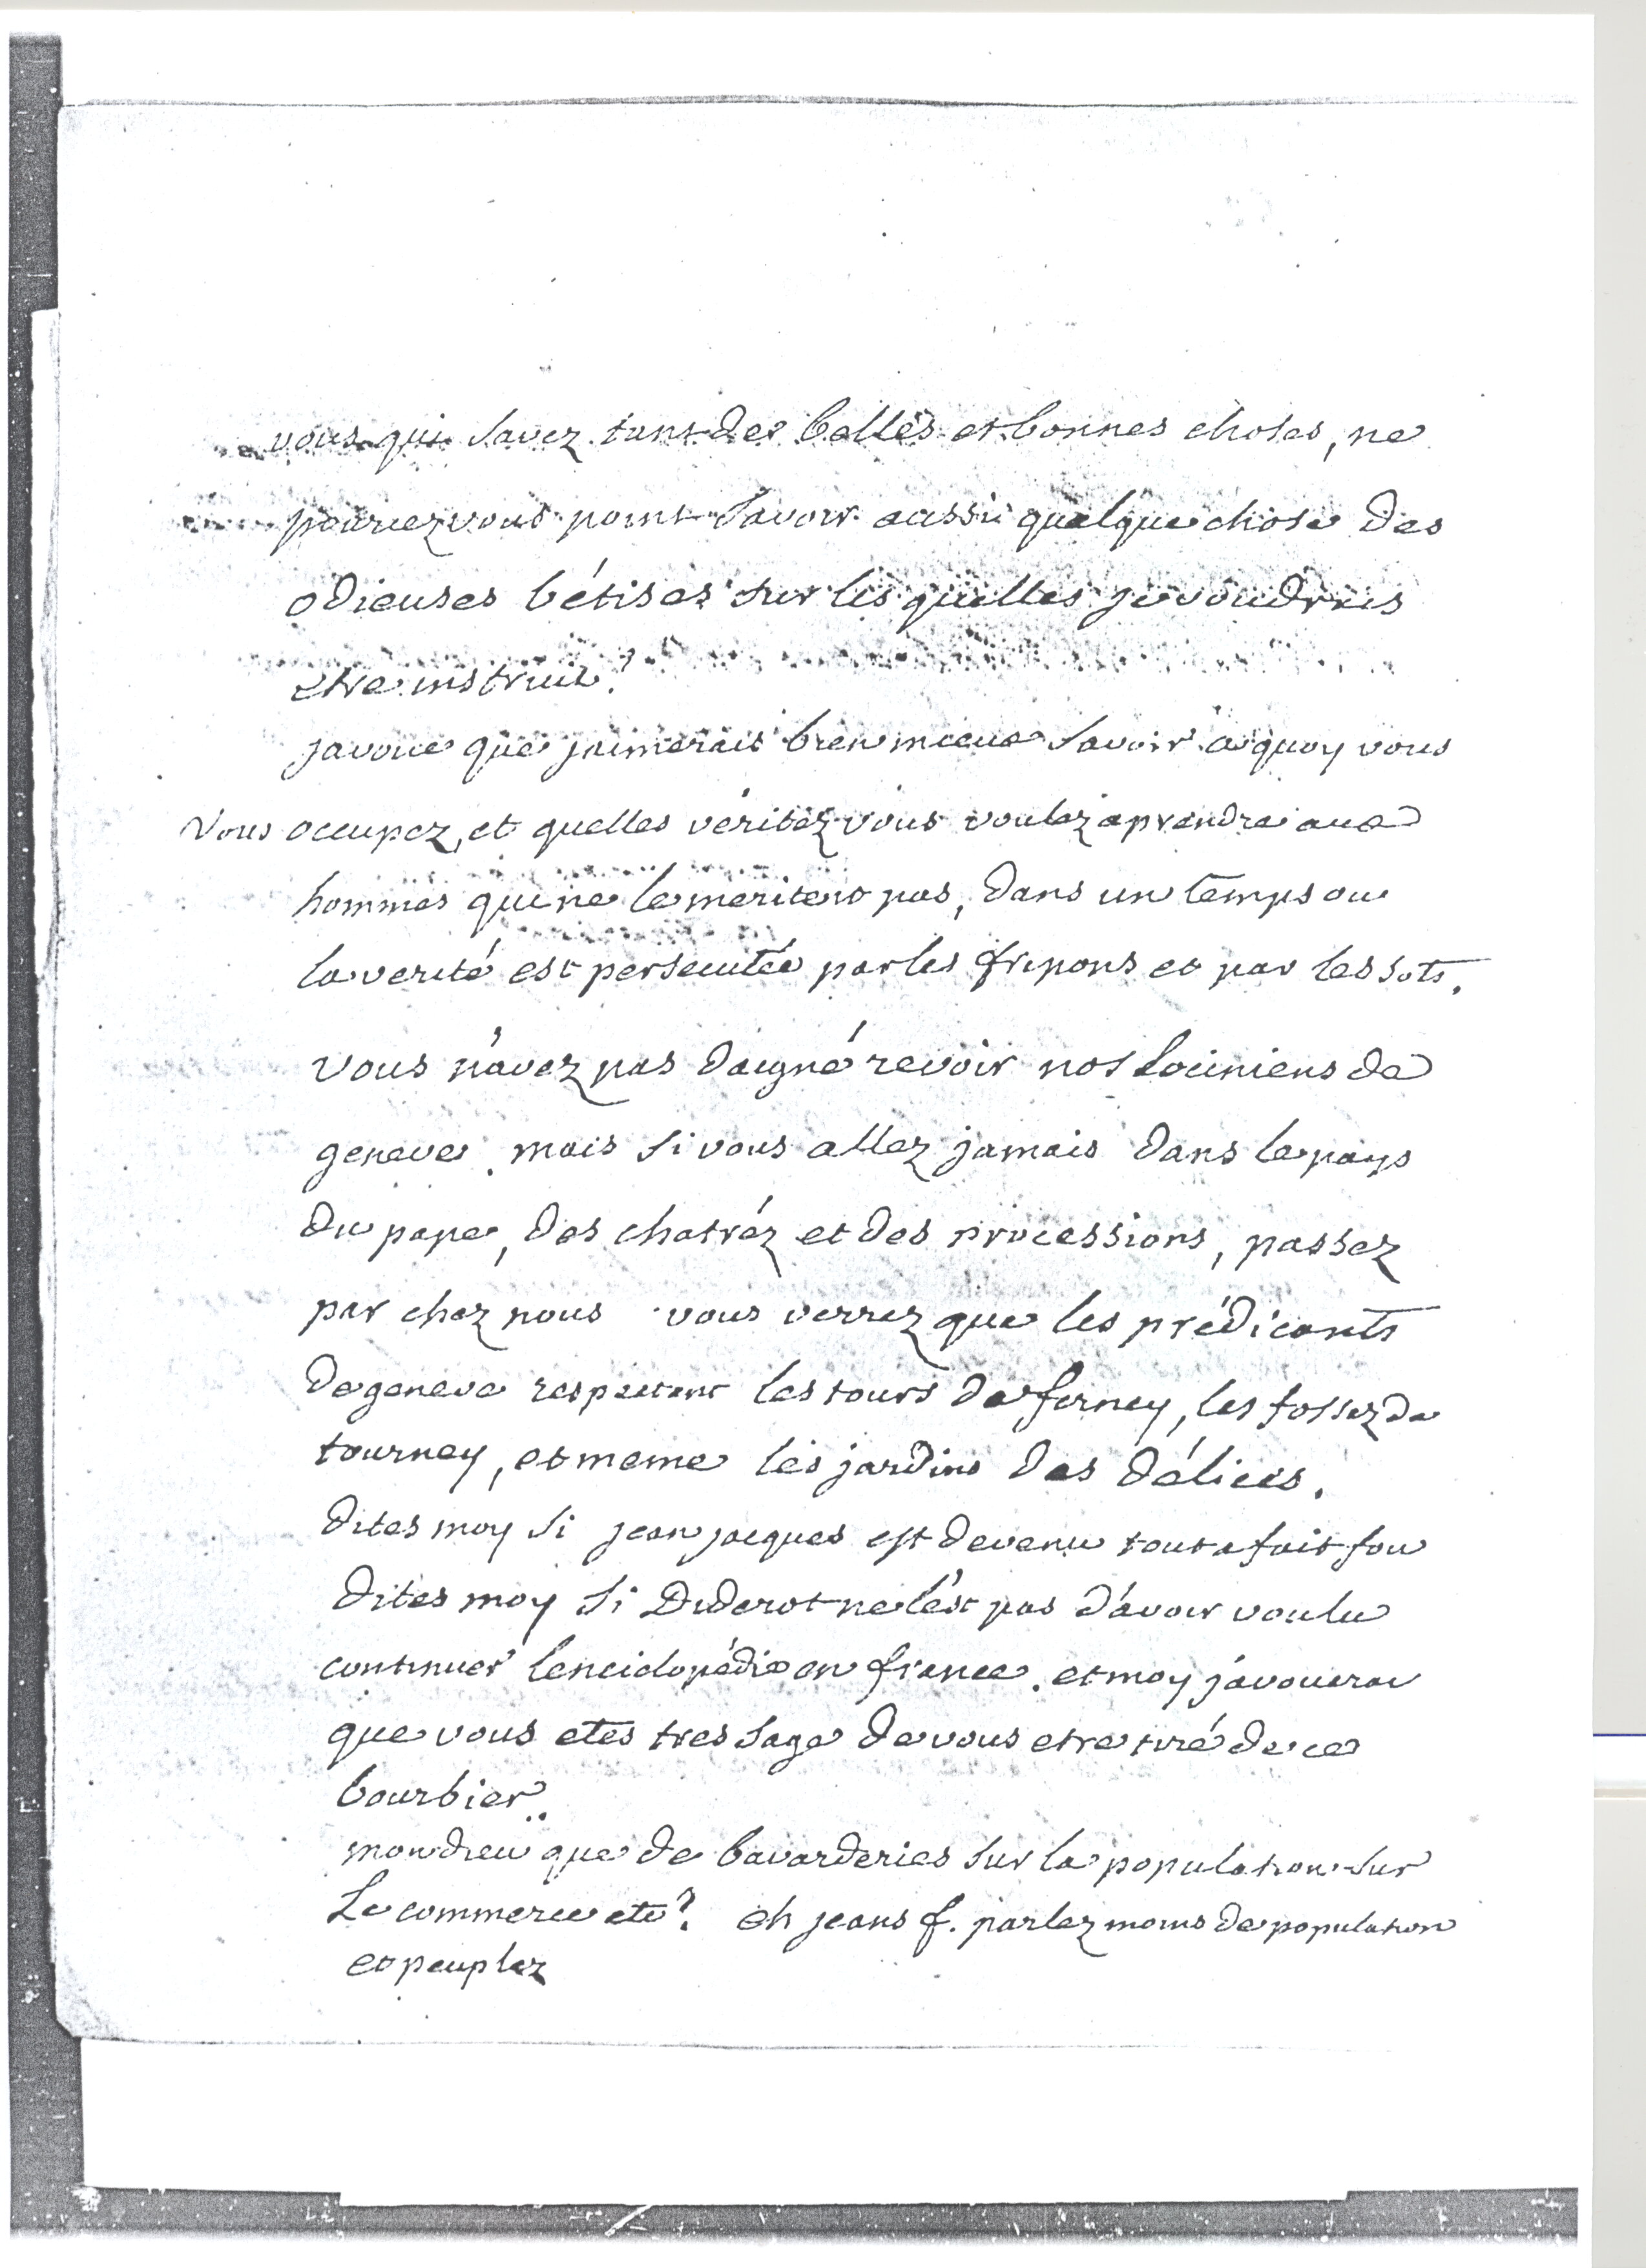 vous qui savez tant de belles et bonnes choses, ne
pouriez vous point savoir aussi quelque chose des
odieuses bétises sur les quelles je voudrais
etre instruit?
javoue que jaimerais bien mieux savoir a quoy vous
vous occupez, et quelles veritez vous voulez aprendre aux
hommes qui ne le meritent pas, dans un temps ou
la verité est persecutée par les fripons et par les sots.
vous n'avez pas daigné revoir nos sociniens de
geneve. mais si vous allez jamais dans le pays
du pape, des chatréz et des processions, passez
par chez nous vous verrez que les prédicants
de geneve respectent les tours de ferney, les fossez de
tourney, et meme les jardins des délices.
dites moy si jean jacques est devenu tout a fait fou
dites moy si Diderot ne l'est pas d'avoir voulu
continuer lenciclopédie en france. et moy j'avouerai
que vous etes tres sage de vous etre tiré de ce
bourbier..
mon dieu que de bavarderies sur la population sur
Le commerce etc? eh jeans f. parlez moins de population
et peuplez